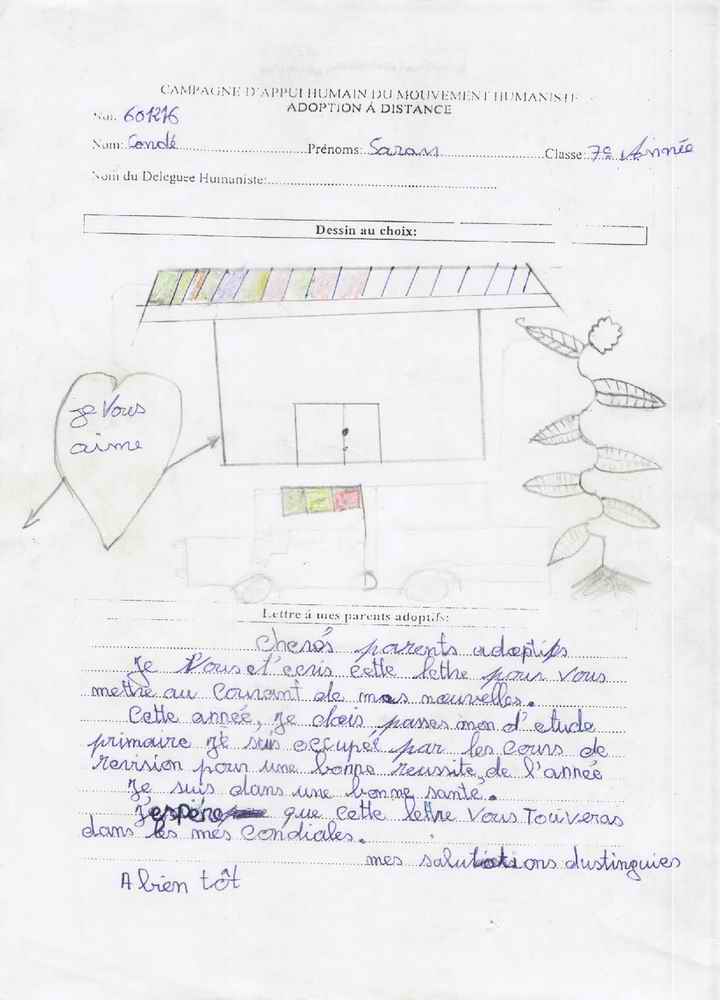 CAMPAGNE D'APPUI HUMAIN DU MOUVEMENT HUMANISTE
ADOPTION Á DISTANCE
No: 601276
Nom: Condé Prénoms: Saran Classe: 7e Année
Nom du Deleguee Humaniste:
Dessin au choix:
je Vous
aime
Lettre á mes parents adoptifs:
cherés parents adoptifs
Je Vous et'ecris cette lettre pour vous
mettre au courant de mes nouvelles.
Cette année, je dois passes mon d'etude
primaire je suis occupeé par les cours de
revision pour une bonne reussite de l'année
Je suis dans une bonne sante.
J'espére que cette lettre Vous Touveras
dans les més condiales.
mes salutations dustinguies
A bien tôt